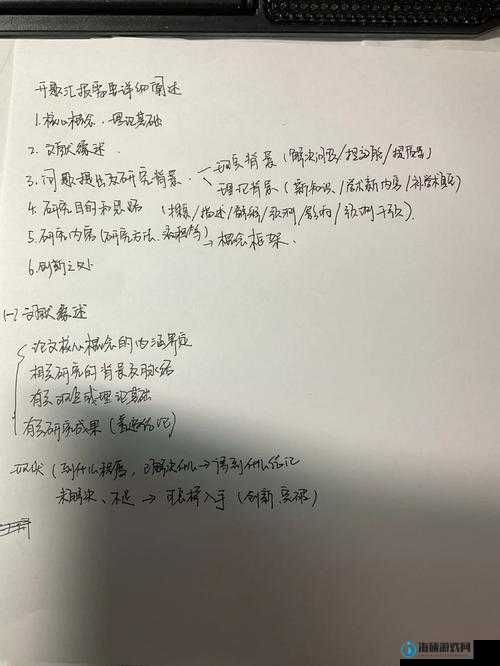 开题汇报需要详细阐述
1.核心概念、理论基础
2.文献综述.
3.问题提出及研究背景.
现实背景(解决问题/提高效能/提质量)
理论背景(新知识/原来新内容/补学术空白)
4.研究目的和思路(摸索/描述/解释/预测/影响/预测干预).
5.研究内容(研究方法、
→概念框架.
6.创新之处
文献综述
论文核心概念的内涵界定
相关研究的背景及脉络
有关研究成果(普遍结论)
现状(到什么程度,已解决什么→得到什么结论
未解决、不足→可怎样入手(创新、
海硕游戏网